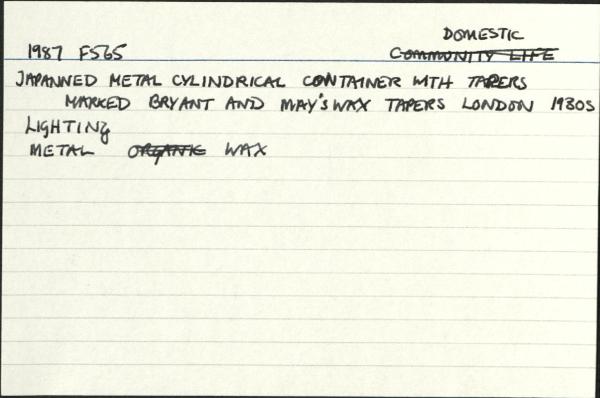 DOMESTIC
1987 F565 COMMUNITY LIFE
JAPANNED METAL CYLINDRICAL CONTAINER WITH TAPERS
MARKED BRYANT AND MAY'S WAX TAPERS LONDON 1930S
LIGHTING
METAL ORGANIC WAX